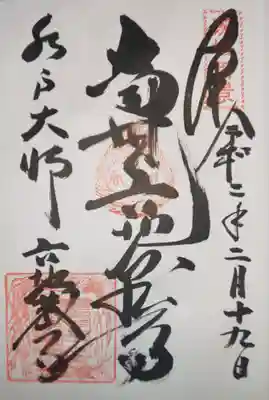 奉拝 令和二年二月十九日
南無六地蔵尊
水戸大師 六地蔵寺